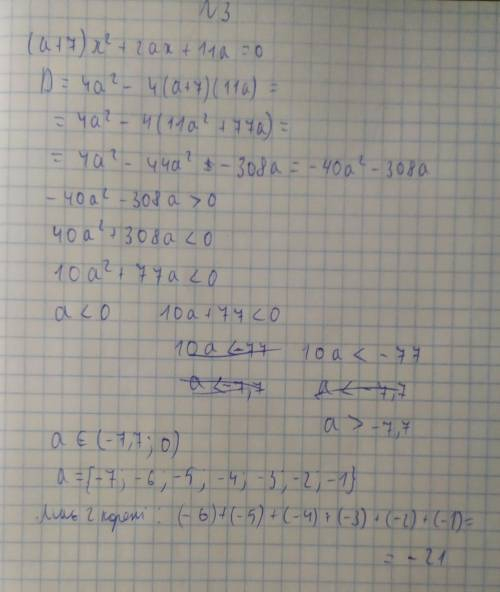 N3
(a+7)x² + 2ax + 11a = 0
D = 4a² - 4(a+7)(11a) =
= 4a² - 4(11a² + 77a) =
= 4a² - 44a² - 308a = -40a² - 308a
-40a² - 308a > 0
40a² + 308a < 0
10a² + 77a < 0
a < 0 10a + 77 < 0
10a < -77 10a < -77
a < -7,7 a < -7,7
a > -7,7
a ∈ (-7,7; 0)
a = {-7; -6; -5; -4; -3; -2; -1}
2 корені: (-6)+(-5)+(-4)+(-3)+(-2)+(-1)=
= -21